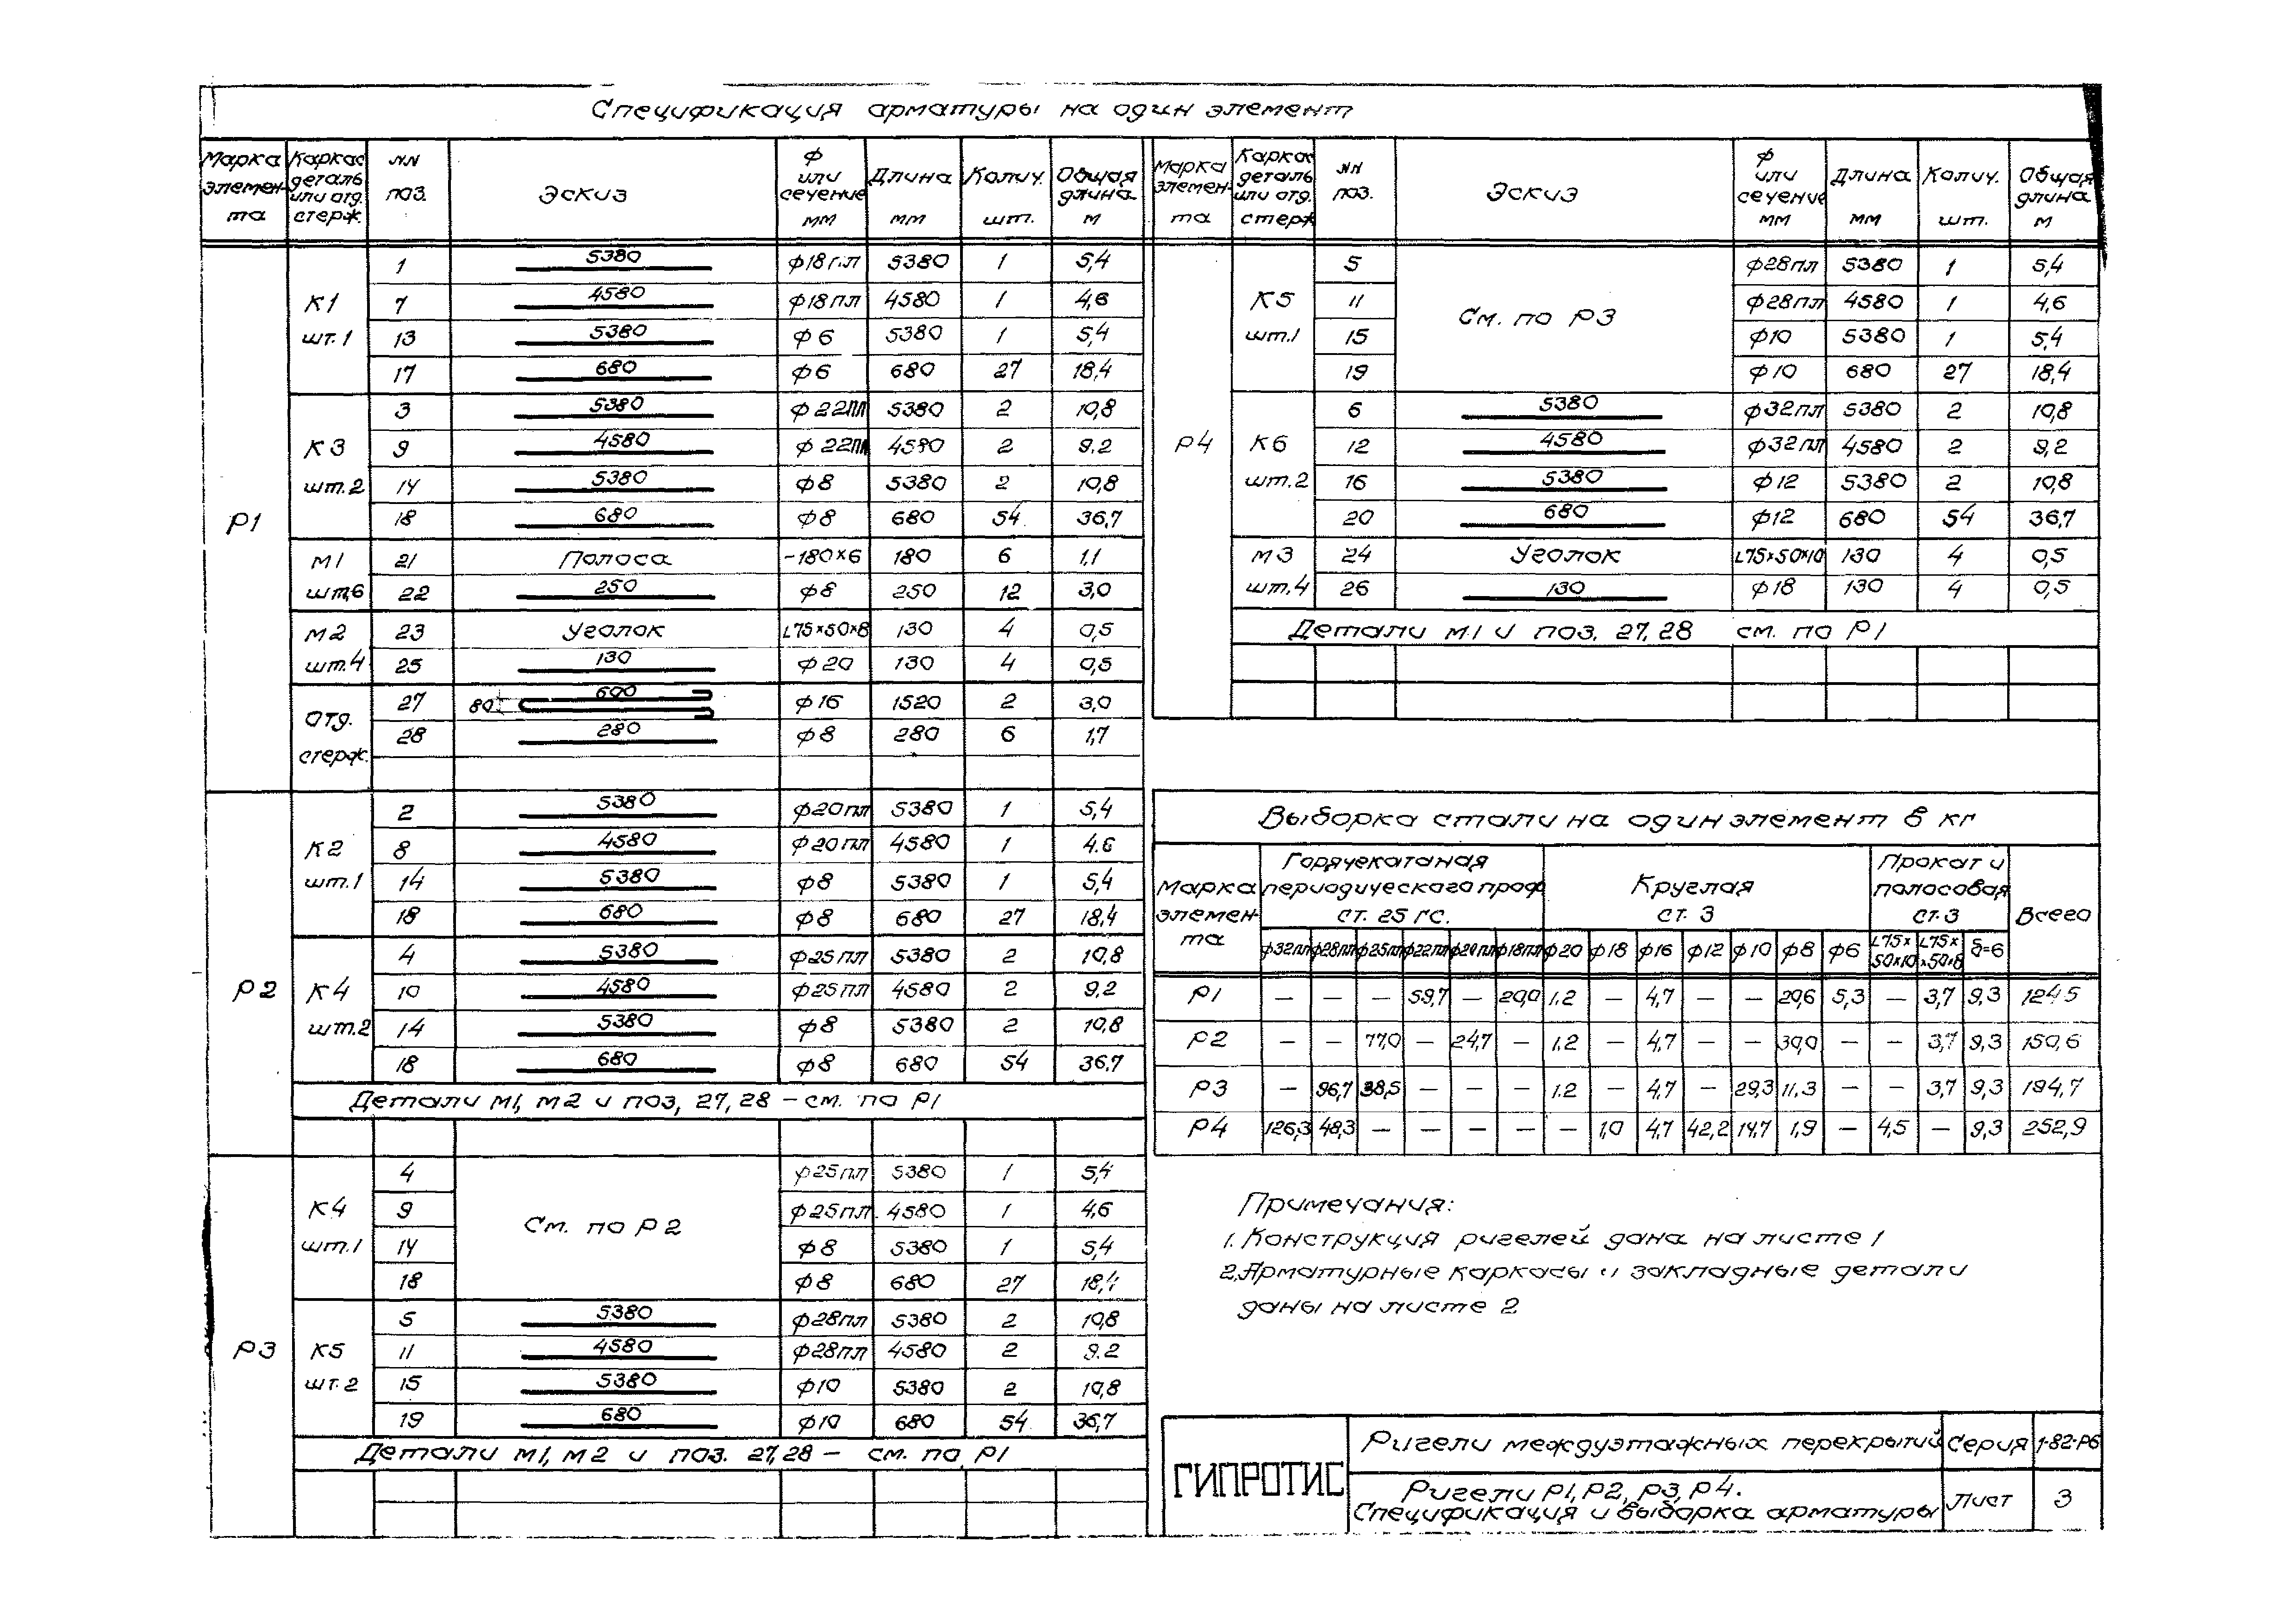 Спецификация арматуры на один элемент
Марка элемен-та | Каркас деталь или отд. стерж. | NN поз. | Эскиз | ф или сечение мм | Длина мм | Колич. шт. | Общая длина м
Р1
К1 шт.1
1 | 5380 | ф18пл | 5380 | 1 | 5,4
7 | 4580 | ф18пл | 4580 | 1 | 4,6
13 | 5380 | ф6 | 5380 | 1 | 5,4
17 | 680 | ф6 | 680 | 27 | 18,4
К3 шт.2
3 | 5380 | ф22пл | 5380 | 2 | 10,8
9 | 4580 | ф22пл | 4580 | 2 | 9.2
14 | 5380 | ф8 | 5380 | 2 | 10,8
18 | 680 | ф8 | 680 | 54 | 36,7
М1 шт.6
21 | Полоса | -180×6 | 180 | 6 | 1,1
22 | 250 | ф8 | 250 | 12 | 3,0
М2 шт.4
23 | Уголок | L75×50×8 | 130 | 4 | 0,5
25 | 130 | ф20 | 130 | 4 | 0,5
Отд. стерж.
27 | 80 600 | ф16 | 1520 | 2 | 3,0
28 | 280 | ф8 | 280 | 6 | 1,7
Р2
К2 шт.1
2 | 5380 | ф20пл | 5380 | 1 | 5,4
8 | 4580 | ф20пл | 4580 | 1 | 4.6
14 | 5380 | ф8 | 5380 | 1 | 5,4
18 | 680 | ф8 | 680 | 27 | 18,4
К4 шт.2
4 | 5380 | ф25пл | 5380 | 2 | 10,8
10 | 4580 | ф25пл | 4580 | 2 | 9,2
14 | 5380 | ф8 | 5380 | 2 | 10,8
18 | 680 | ф8 | 680 | 54 | 36.7
Детали М1, М2 и поз, 27, 28 – см. по Р1
Р3
К4 шт.1
См. по Р2
4 | ф25пл | 5380 | 1 | 5,4
9 | ф25пл. | 4580 | 1 | 4,6
14 | ф8 | 5380 | 1 | 5,4
18 | ф8 | 680 | 27 | 18,4
К5 шт.2
5 | 5380 | ф28пл | 5380 | 2 | 10,8
11 | 4580 | ф28пл | 4580 | 2 | 9.2
15 | 5380 | ф10 | 5380 | 2 | 10,8
19 | 680 | ф10 | 680 | 54 | 36,7
Детали М1, М2 и поз. 27,28 – см. по Р1
Марка элемен-та | Каркас деталь или отд. стерж | NN поз. | Эскиз | ф или сечение мм | Длина мм | Колич. шт. | Общая длина м
Р4
К5 шт.1
См. по Р3
5 | ф28пл | 5380 | 1 | 5,4
11 | ф28пл | 4580 | 1 | 4,6
15 | ф10 | 5380 | 1 | 5,4
19 | ф10 | 680 | 27 | 18,4
К6 шт.2
6 | 5380 | ф32пл | 5380 | 2 | 10,8
12 | 4580 | ф32пл | 4580 | 2 | 9,2
16 | 5380 | ф12 | 5380 | 2 | 10,8
20 | 680 | ф12 | 680 | 54 | 36,7
М3 шт.4
24 | Уголок | L75×50×10 | 130 | 4 | 0,5
26 | 130 | ф18 | 130 | 4 | 0,5
Детали М.1 и поз. 27,28 см. по Р1
Выборка стали на один элемент в кг
Марка элемен-та | Горячекатаная периодического проф ст. 25 гс. | Круглая ст. 3 | Прокат и полосовая ст.3 | Всего
ф32пл | ф28пл | ф25пл | ф22пл | ф20пл | ф18пл | ф20 | ф18 | ф16 | ф12 | ф10 | ф8 | ф6 | L75× 50×10 | L75× ×50×8 | δ=6
Р1 | – | – | – | 59,7 | – | 20,0 | 1.2 | – | 4,7 | – | – | 20,6 | 5,3 | – | 3,7 | 9,3 | 124.5
Р2 | – | – | 77,0 | – | 24,7 | – | 1.2 | – | 4,7 | – | – | 30,0 | – | – | 3,7 | 9,3 | 150,6
Р3 | – | 96,7 | 38,5 | – | – | – | 1.2 | – | 4,7 | – | 29,3 | 11,3 | – | – | 3,7 | 9,3 | 194,7
Р4 | 126,3 | 48,3 | – | – | – | – | – | 1,0 | 4,7 | 42,2 | 14,7 | 1,9 | – | 4,5 | – | 9,3 | 252,9
Примечания:
1. Конструкция ригелей дана на листе 1
2. Арматурные каркасы и закладные детали
даны на листе 2
ГИПРОТИС
Ригели междуэтажных перекрытий | Серия | 1-82-Р6
Ригели Р1, Р2, Р3, Р4.
Спецификация и выборка арматуры | Лист | 3